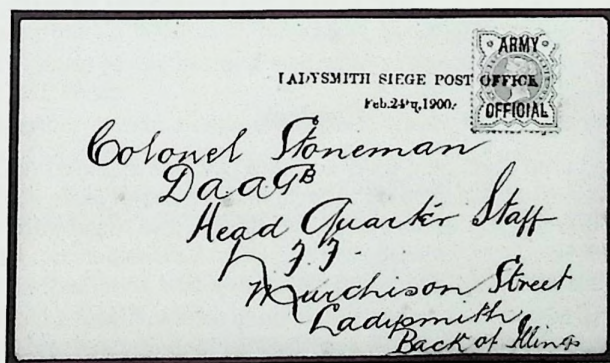 ARMY
LADYSMITH SIEGE POST OFFICE
Feb. 24th, 1900.
OFFICIAL
Colonel Stoneman
DaaG
Head Quarter Staff
Murchison Street
Ladysmith
Back of Illings